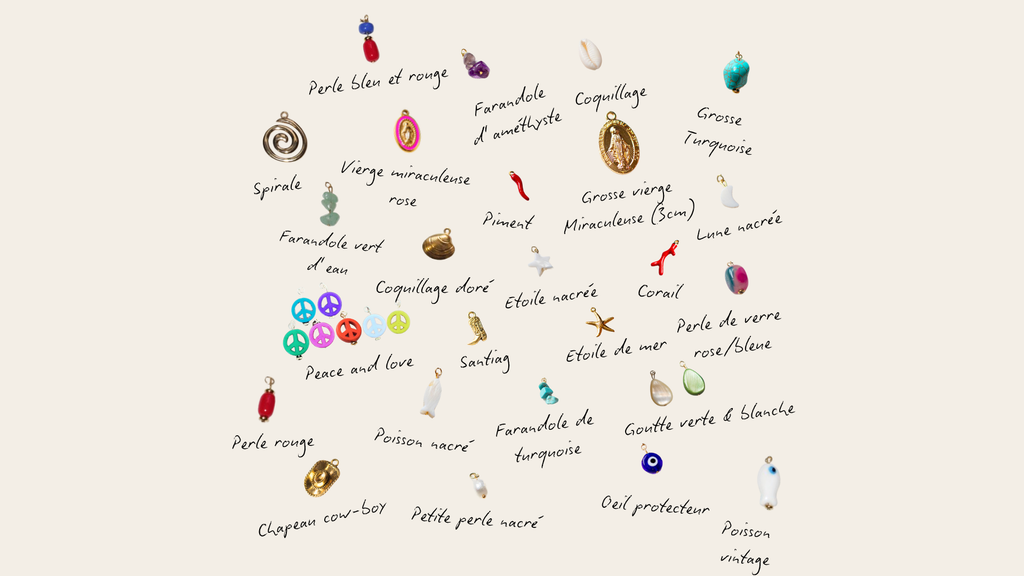 Perle bleu et rouge
Farandole
d'améthyste
Coquillage
Grosse
Turquoise
Spirale
Vierge miraculeuse
rose
Piment
Grosse vierge
Miraculeuse (3cm)
Lune nacrée
Farandole vert
d'eau
Coquillage doré
Etoile nacrée
Corail
Perle de verre
rose/bleue
Peace and love
Santiag
Etoile de mer
Perle rouge
Poisson nacré
Farandole de
turquoise
Goutte verte & blanche
Chapeau cow-boy
Petite perle nacré
Oeil protecteur
Poisson
vintage